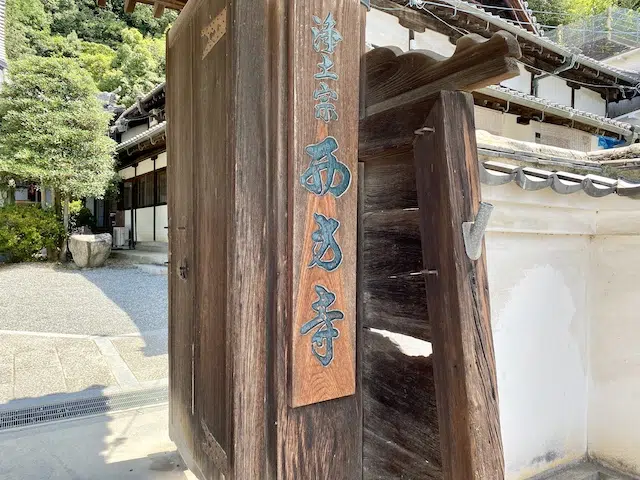 浄土宗西光寺